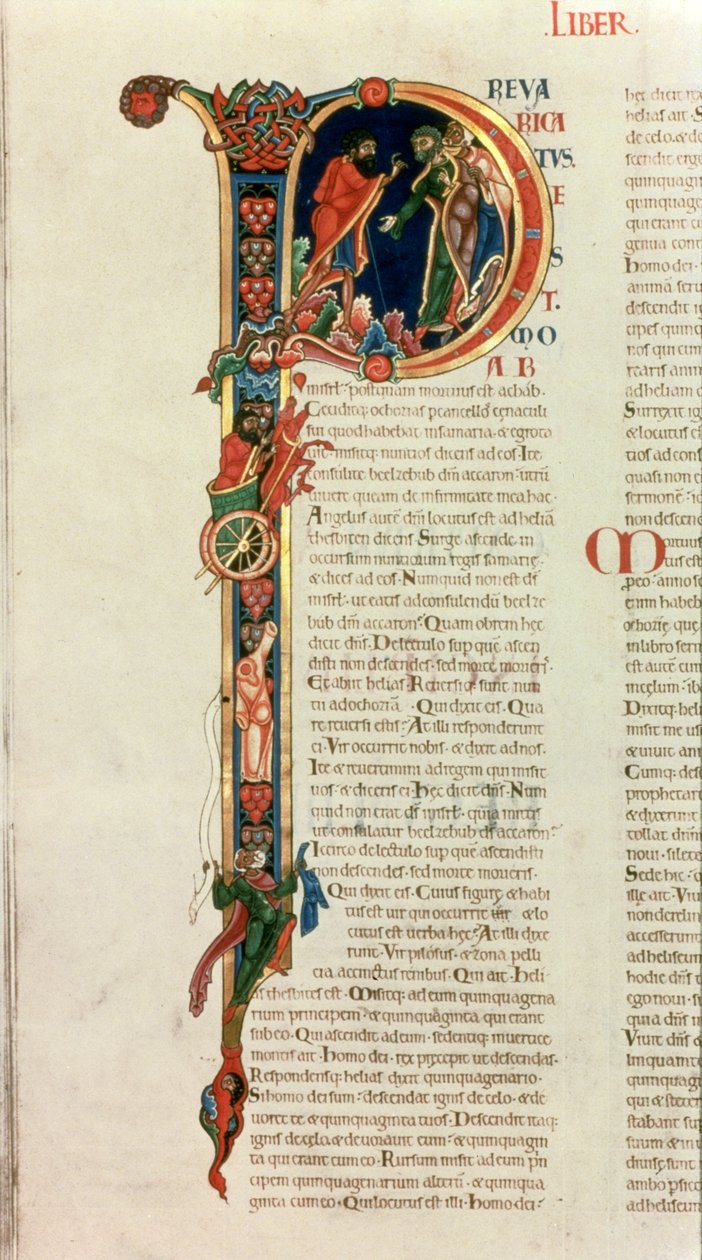 .LIBER.
PREVA
RICA
TUS.
E
S
T.
MO
AB
inisrl'. postquam mortuus est achab.
Ceciditq; ochozias p cancellos cenaculi
sui quod habebat in samaria. & egrota
uit. misitq; nuntios dicens ad eos. Ite
consulite beelzebub dm̄ accaron. utrū
uiuere queam de infirmitate mea hac.
Angelus autē dm̄ locutus est ad heliā
thesbiten dicens. Surge ascende in
occursum nuntiorum regis samarie.
& dices ad eos. Numquid non est ds̄
in isrl'. ut eatis ad consulendū beelze
bub dm̄ accaron? Quam obrem hec
dicit dn̄s. De lectulo sup quē ascen
disti non descendes. sed morte morieris.
Et abiit helias. Reuersiq; sunt nun
tii ad ochoziā. Qui dixit eis. Qua
re reuersi estis? At illi responderunt
ei. Vir occurrit nobis. & dixit ad nos.
Ite & reuertimini ad regem qui misit
uos. & dicetis ei. Hęc dicit dn̄s. Num
quid non erat ds̄ in isrl'. quia mittis
ut consulatur beelzebub ds̄ accaron?
Icirco de lectulo sup quē ascendisti
non descendes. sed morte morieris.
Qui dixit eis. Cuius figurę & habi
tus est uir qui occurrit uobis & lo
cutus est uerba hęc? At illi dixe
runt. Vir pilosus. & zona pelli
cia accinctus renibus. Qui ait. Heli
as thesbites est. Misitq; ad eum quinquagena
rium principem. & quinquaginta qui erant
sub eo. Qui ascendit ad eum. sedentiq; in uertice
montis ait. Homo dei. rex precepit ut descendas.
Respondensq; helias dixit quinquagenario.
Si homo dei sum. descendat ignis de celo. & de
uoret te & quinquaginta tuos. Descendit itaq;
ignis de cęlo. & deuorauit eum. & quinquagin
ta qui erant cum eo. Rursum misit ad eum prin
cipem quinquagenarium alterū. & quinqua
ginta cum eo. Qui locutus est illi. Homo dei.
hęc dicit
helias ait. S
de celo. & de
scendit ergo
quinquagin
quinquage
qui erant cu
genua cont
Homo dei.
animā seru
descendit ig
cipes quinq
nos qui cum
rearis anim
ad heliam d
Surrexit ig
& locutus es
tios ad cons
quasi non e
sermonē. id
non descend
Mortuus
tus est
p eo. anno se
enim habeb
ochozię. que
in libro serm
est autē cum
in cęlum. ib
Dixitq; heli
misit me us
& uiuit ani
Cumq; desc
prophetar
& dixerunt
tollat dn̄m
noui. silete
Sede hic. q
ille ait. Viu
non derelin
accesserunt
ad heliseum
hodie dn̄s t
ego noui. si
quia dn̄s m
Viuit dn̄s &
linquam te
quinquagi
qui & steter
stabant sup
suum & in
diuisę sunt
ambo p sicc
ad heliseum